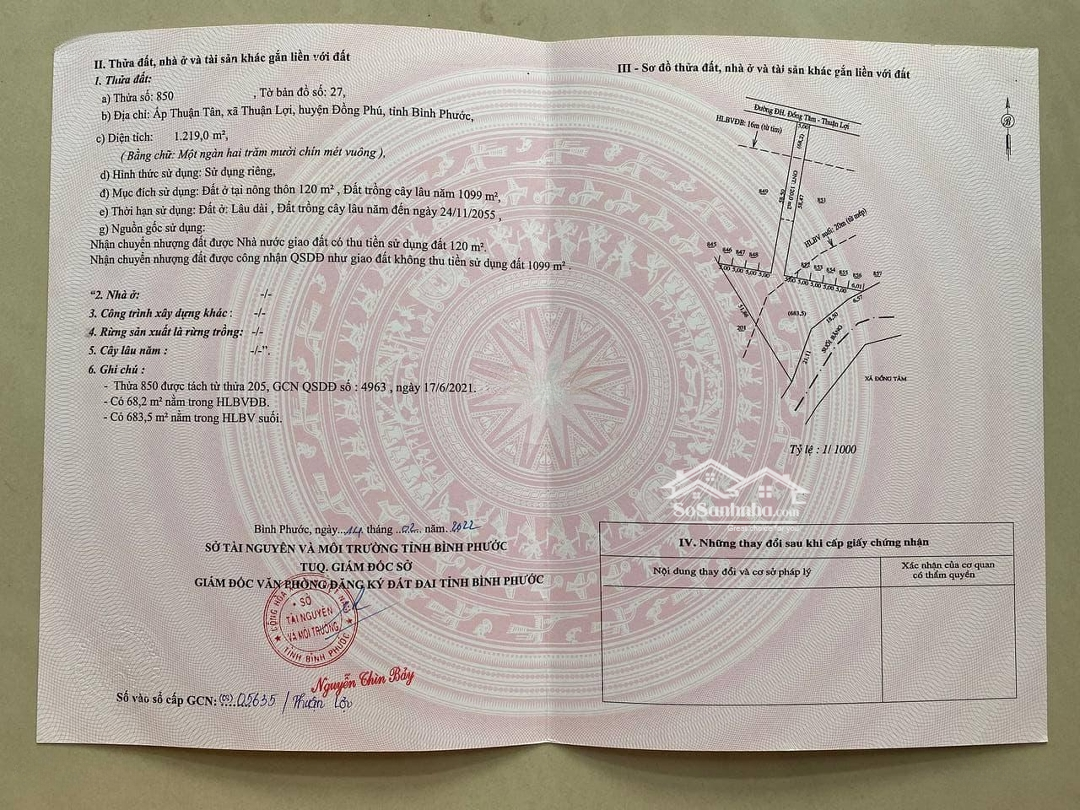 II. Thửa đất, nhà ở và tài sản khác gắn liền với đất
1. Thửa đất:
a) Thửa số: 850 , Tờ bản đồ số: 27,
b) Địa chỉ: Ấp Thuận Tân, xã Thuận Lợi, huyện Đồng Phú, tỉnh Bình Phước,
c) Diện tích: 1.219,0 m²,
( Bằng chữ: Một ngàn hai trăm mười chín mét vuông ),
d) Hình thức sử dụng: Sử dụng riêng,
đ) Mục đích sử dụng: Đất ở tại nông thôn 120 m² , Đất trồng cây lâu năm 1099 m²,
e) Thời hạn sử dụng: Đất ở: Lâu dài , Đất trồng cây lâu năm đến ngày 24/11/2055 ,
g) Nguồn gốc sử dụng:
Nhận chuyển nhượng đất được Nhà nước giao đất có thu tiền sử dụng đất 120 m².
Nhận chuyển nhượng đất được công nhận QSDĐ như giao đất không thu tiền sử dụng đất 1099 m² .
“2. Nhà ở: -/-
3. Công trình xây dựng khác : -/-
4. Rừng sản xuất là rừng trồng: -/-
5. Cây lâu năm : -/-”.
6. Ghi chú :
- Thửa 850 được tách từ thửa 205, GCN QSDĐ số : 4963 , ngày 17/6/2021.
- Có 68,2 m² nằm trong HLBVĐB.
- Có 683,5 m² nằm trong HLBV suối.
Bình Phước, ngày...14.tháng ..02.. năm. 2022
SỞ TÀI NGUYÊN VÀ MÔI TRƯỜNG TỈNH BÌNH PHƯỚC
TUQ. GIÁM ĐỐC SỞ
GIÁM ĐỐC VĂN PHÒNG ĐĂNG KÝ ĐẤT ĐAI TỈNH BÌNH PHƯỚC
SỞ
TÀI NGUYÊN
VÀ MÔI TRƯỜNG
TỈNH BÌNH PHƯỚC
Nguyễn Chín Bảy
Số vào sổ cấp GCN: 05635 / Thuận Lợi
III - Sơ đồ thửa đất, nhà ở và tài sản khác gắn liền với đất
Đường ĐH. Đồng Tâm - Thuận Lợi
HLBVĐB: 16m (từ tim)
5,00
(68,2)
849
58,50
ONT: 120,0 m2
58,47
851
HLBV suối: 20m (từ mép)
845 846 847 848
5,00 5,00 5,00 5,00
852 853 854 855 856 857
5,00 5,00 5,00 5,00 5,00 6,01
6,57
(683,5)
18,50
204
21,11
SUỐI RÁNG
XÃ ĐỒNG TÂM
Tỷ lệ : 1/ 1000
SoSanhnha.com
IV. Những thay đổi sau khi cấp giấy chứng nhận
Nội dung thay đổi và cơ sở pháp lý
Xác nhận của cơ quan
có thẩm quyền